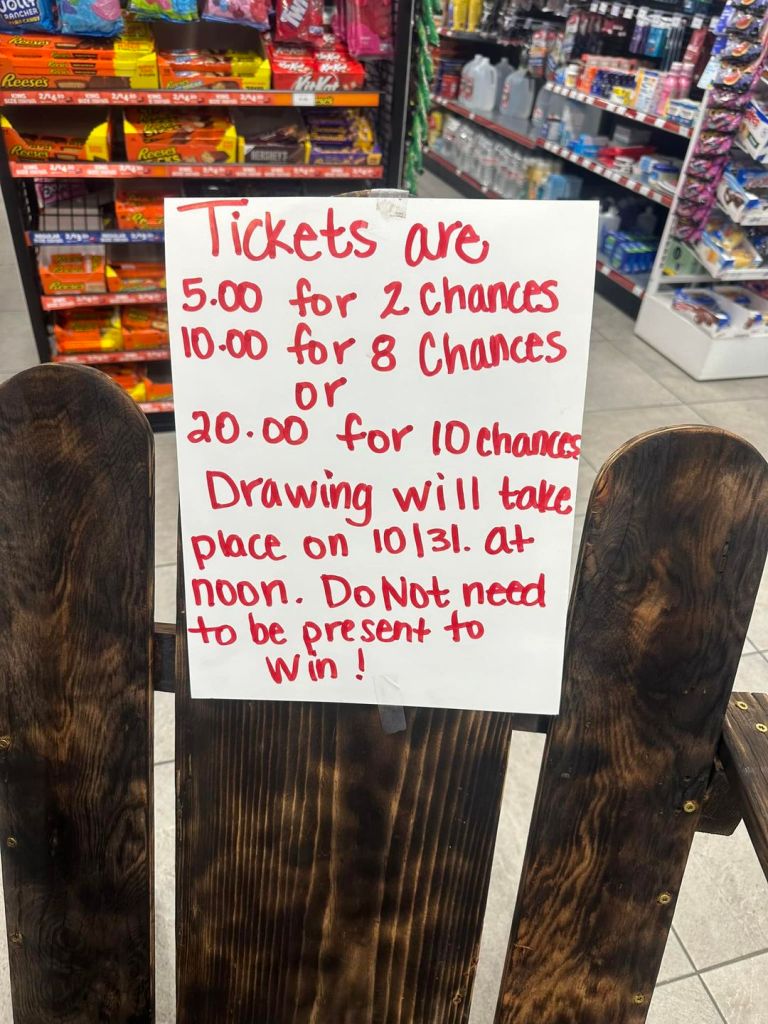 Tickets are
5.00 for 2 Chances
10.00 for 8 Chances
or
20.00 for 10 chances
Drawing will take
place on 10/31. at
noon. Do Not need
to be present to
win!
JOLLY
RANCHER
Reese's
KitKat
Reese's
Reese's
HERSHEY'S